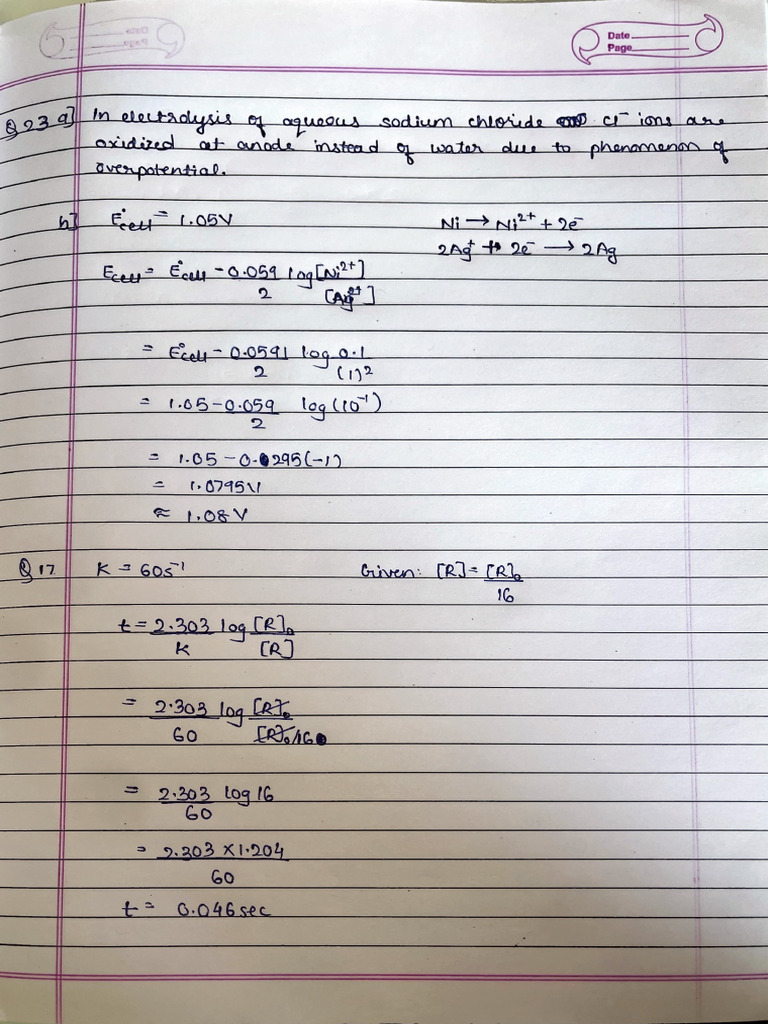 Date
Page
Q23 a] In electrolysis of aqueous sodium chloride Cl⁻ ions are
oxidized at anode instead of water due to phenomenon of
overpotential.
b] E°cell = 1.05V
Ni → Ni²⁺ + 2e⁻
2Ag⁺ + 2e⁻ → 2Ag
Ecell = E°cell - 0.059/2 log [Ni²⁺]/[Ag⁺]
= E°cell - 0.0591/2 log 0.1/(1)²
= 1.05 - 0.059/2 log (10⁻¹)
= 1.05 - 0.0295(-1)
= 1.0795V
≈ 1.08 V
Q17 K = 60s⁻¹
Given: [R] = [R]₀/16
t = 2.303/K log [R]₀/[R]
= 2.303/60 log [R]₀/[R]₀/16
= 2.303/60 log 16
= 2.303 × 1.204/60
t = 0.046 sec